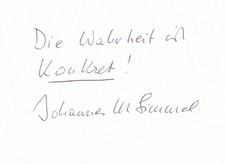 Die Wahrheit ist
Konkret!
Johannes M Simmel